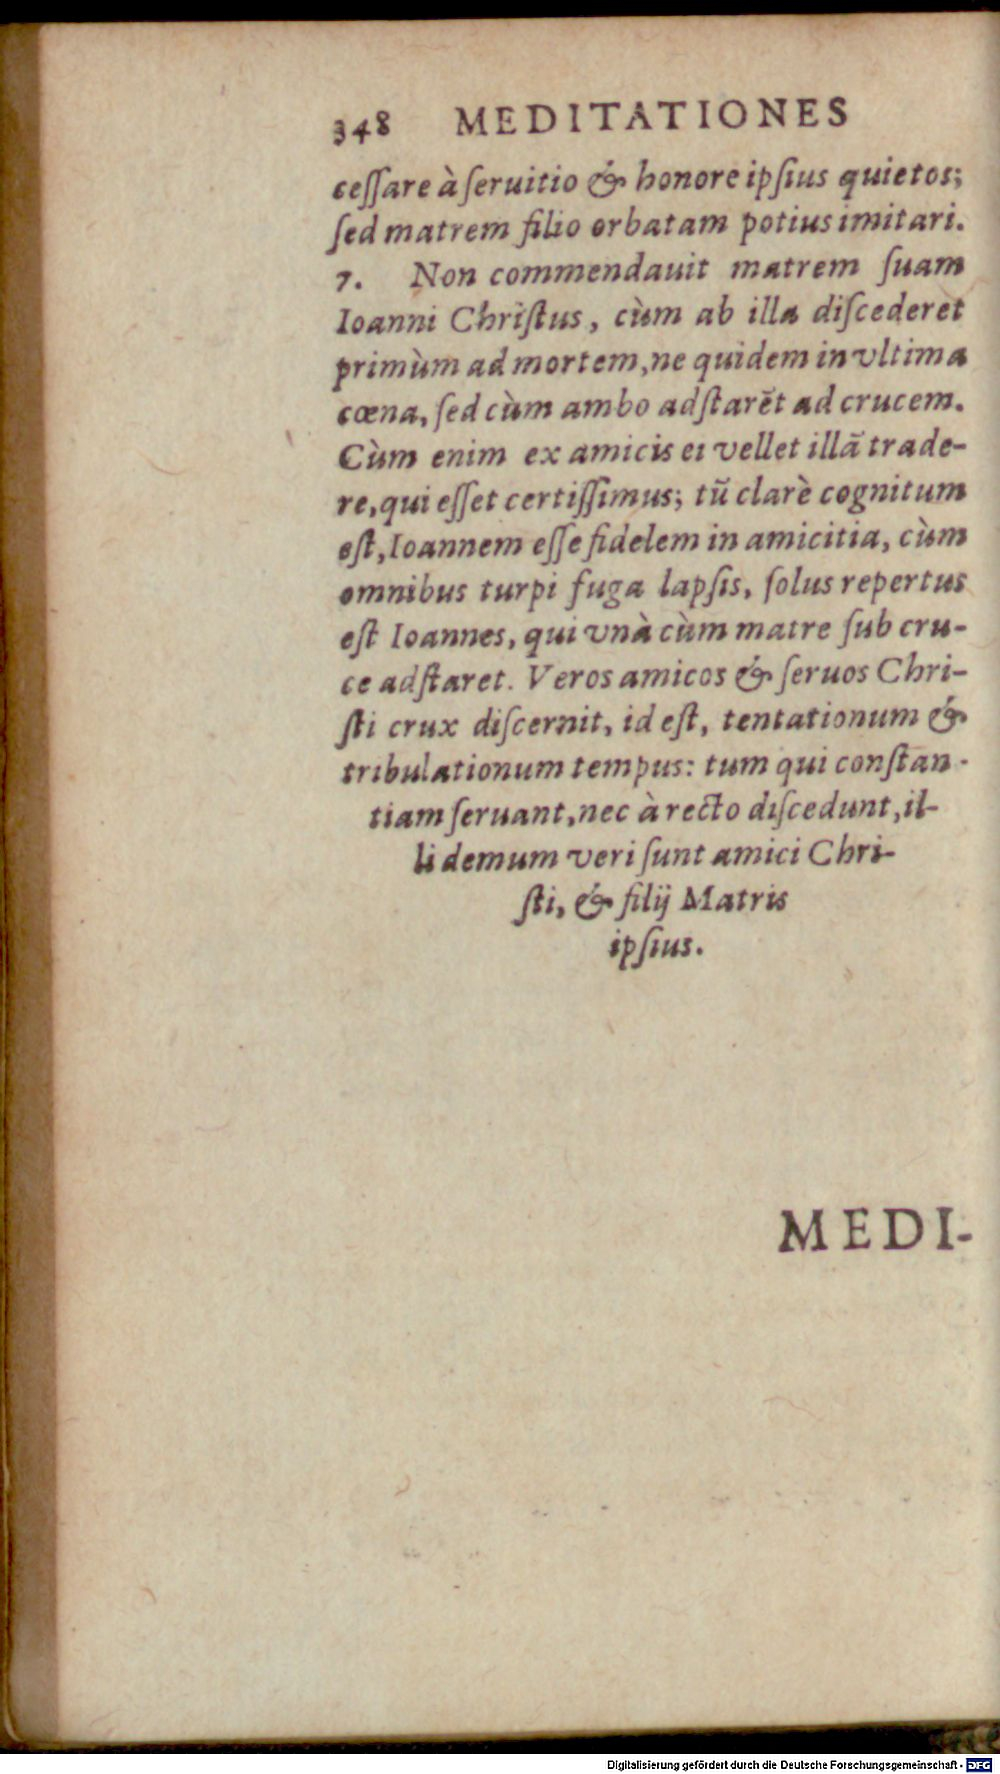 348 MEDITATIONES
ceſſare à ſeruitio & honore ipſius quietos;
ſed matrem filio orbatam potius imitari.
7. Non commendauit matrem ſuam
Ioanni Chriſtus, cùm ab illa diſcederet
primùm ad mortem, ne quidem in vltima
cœna, ſed cùm ambo adſtarẽt ad crucem.
Cùm enim ex amicis ei vellet illã trade-
re, qui eſſet certiſſimus; tũ clarè cognitum
eſt, Ioannem eſſe fidelem in amicitia, cùm
omnibus turpi fuga lapſis, ſolus repertus
eſt Ioannes, qui vnà cùm matre ſub cru-
ce adſtaret. Veros amicos & ſeruos Chri-
ſti crux diſcernit, id eſt, tentationum &
tribulationum tempus: tum qui conſtan-
tiam ſeruant, nec à recto diſcedunt, il-
li demum veri ſunt amici Chri-
ſti, & filij Matris
ipſius.
MEDI-
Digitalisierung gefördert durch die Deutsche Forschungsgemeinschaft - DFG